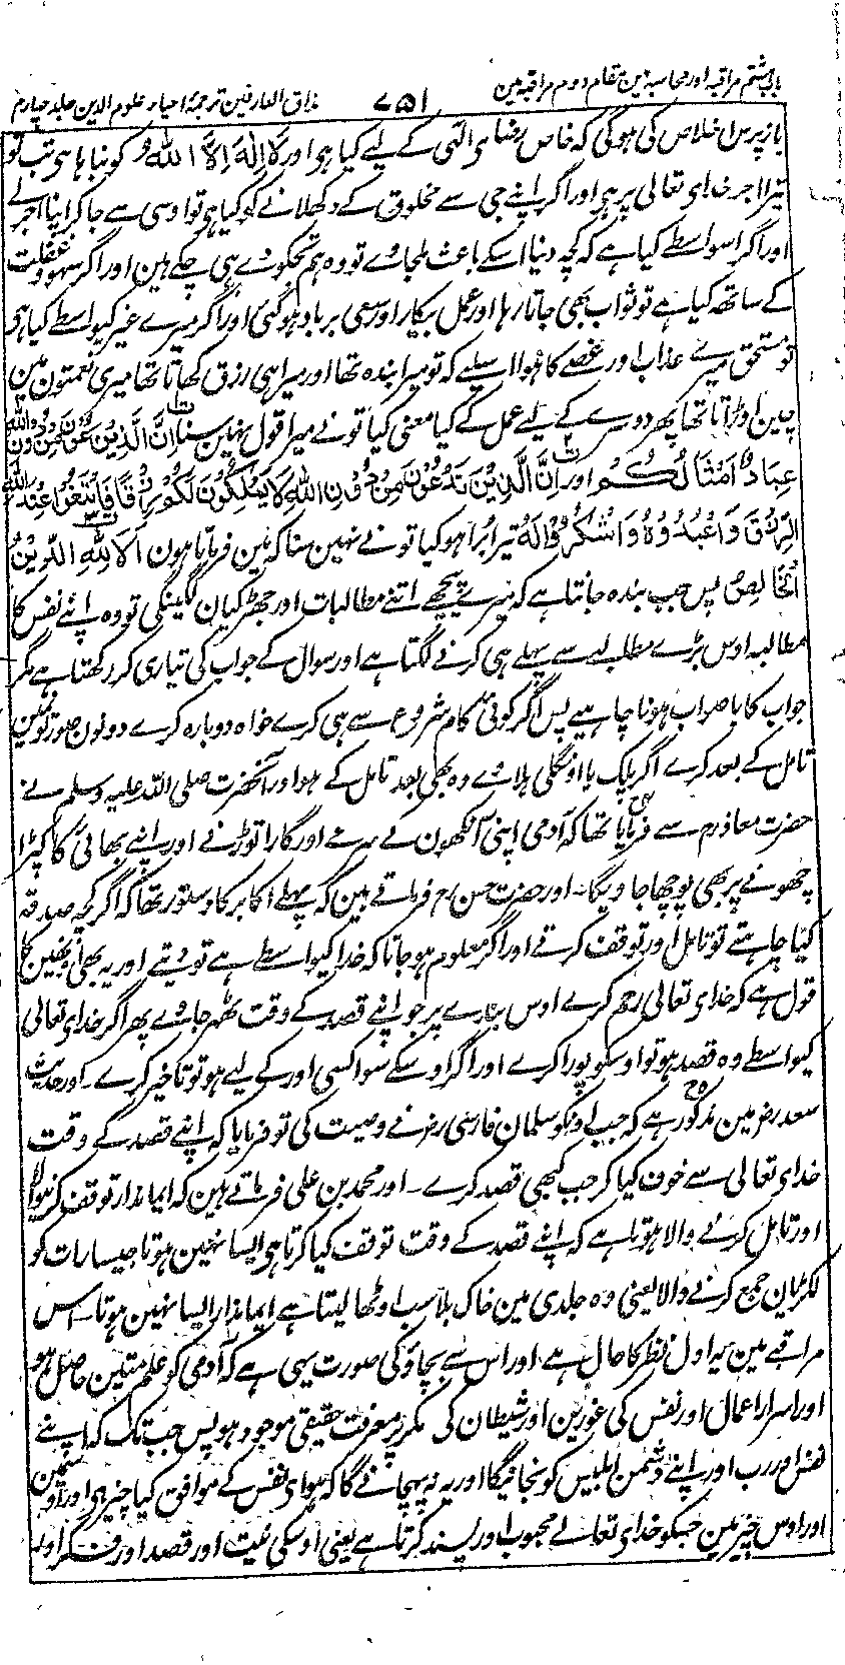 باب ہشتم مراقبہ اور محاسبہ مین مقام دوم مراقبہ مین
۷۵۱
مذاق العارفین ترجمۂ احیاء علوم الدین جلد چہارم
باز پرس اخلاص کی ہوگی کہ خاص رضای الٰہی کے لیے کیا ہی اور لَا اِلٰہَ اِلَّا اللّٰہُ کو نباہا ہی تب تو
تیرا اجر خدای تعالی پر ہی اور اگر اپنے جی سے مخلوق کے دکھلانے کو کیا ہی تو اوسی سے جا کر اپنا اجر لے
اور اگر اسواسطے کیا ہے کہ کچھ دنیا اسکے باعث ملجاوے تو وہ ہم تجکو دے ہی چکے ہین اور اگر سہو و غفلت
کے ساتھ کیا ہے تو ثواب بھی جاتا رہا اور عمل بیکار اور سعی برباد ہوگئی اور اگر میرے غیر کیواسطے کیا ہی
تو مستحق میرے عذاب اور غصے کا ہوا اسلیے کہ تو میرا بندہ تھا اور میرا ہی رزق کھاتا تھا میری نعمتون مین
چین اوڑاتا تھا پھر دوسرے کے لیے عمل کے کیا معنی کیا تو نے میرا قول نہین سنا اِنَّ الَّذِیْنَ تَدْعُوْنَ مِنْ دُوْنِ اللّٰہِ
عِبَادٌ اَمْثَالُکُمْ اور اِنَّ الَّذِیْنَ تَدْعُوْنَ مِنْ دُوْنِ اللّٰہِ لَا یَمْلِکُوْنَ لَکُمْ رِزْقًا فَابْتَغُوْا عِنْدَ اللّٰہِ
الرِّزْقَ وَاعْبُدُوْہُ وَاشْکُرُوْا لَہٗ تیرا برا ہو کیا تو نے نہین سنا کہ مین فرماتا ہون اَلَا لِلّٰہِ الدِّیْنُ
الْخَالِصُ پس جب بندہ جانتا ہے کہ میرے پیچھے اتنے مطالبات اور جھڑکیان لگینگی تو وہ اپنے نفس کا
مطالبہ اوس بڑے مطالبے سے پہلے ہی کرنے لگتا ہے اور سوال کے جواب کی تیاری کر رکھتا ہے مگر
جواب کا باصواب ہونا چاہیے پس اگر کوئی کام شروع سے ہی کرے خواہ دوبارہ کرے دونون صورتونمین
تامل کے بعد کرے اگر پلک یا اونگلی ہلاوے وہ بھی بعد تامل کے ہو اور آنحضرت صلی اللہ علیہ وسلم نے
حضرت معاذ رض سے فرمایا تھا کہ آدمی اپنی آنکھون کے سرمے اور گارا توڑنے اور اپنے بھائی کا کپڑا
چھونے پر بھی پوچھا جاویگا۔ اور حضرت حسن رح فرماتے ہین کہ پہلے اکابر کا دستور تھا کہ اگر کچھ صدقہ
کیا چاہتے تو تامل اور توقف کرتے اور اگر معلوم ہو جاتا کہ خدا کیواسطے ہے تو دیتے اور یہ بھی اونھین کا
قول ہے کہ خدای تعالی رحم کرے اوس بندے پر جو اپنے قصد کے وقت ٹھہر جاوے پھر اگر خدای تعالی
کیواسطے وہ قصد ہو تو اوسکو پورا کرے اور اگر اوسکے سوا کسی اور کے لیے ہو تو تاخیر کرے۔ اور حدیث
سعد رض مین مذکور ہے کہ جب اونکو سلمان فارسی رض نے وصیت کی تو فرمایا کہ اپنے قصد کے وقت
خدای تعالی سے خوف کیا کر جب کبھی قصد کرے۔ اور محمد بن علی فرماتے ہین کہ ایماندار توقف کرنیوالا
اور تامل کرنے والا ہوتا ہے کہ اپنے قصد کے وقت توقف کیا کرتا ہی ایسا نہین ہوتا جیسا رات کو
لکڑیان جمع کرنے والا یعنی وہ جلدی مین خاک بلا سب اوٹھا لیتا ہے ایماندار ایسا نہین ہوتا۔ اس
مراقبے مین یہ اول نظر کا حال ہے اور اس سے بچاؤ کی صورت یہی ہے کہ آدمی کو علم متین حاصل ہو
اور اسرار اعمال اور نفس کی غورین اور شیطان کی مکر پر معرفت حقیقی موجود ہو پس جب تک کہ اپنے
نفس اور رب اور اپنے دشمن ابلیس کو نجانیگا اور یہ نہ پہچانے گا کہ ہوای نفس کے موافق کیا چیز ہی اور اوسمین
اور اوس چیز مین جسکو خدای تعالے محبوب اور پسند کرتا ہے یعنی اوسکی نیت اور قصد اور فکر اور